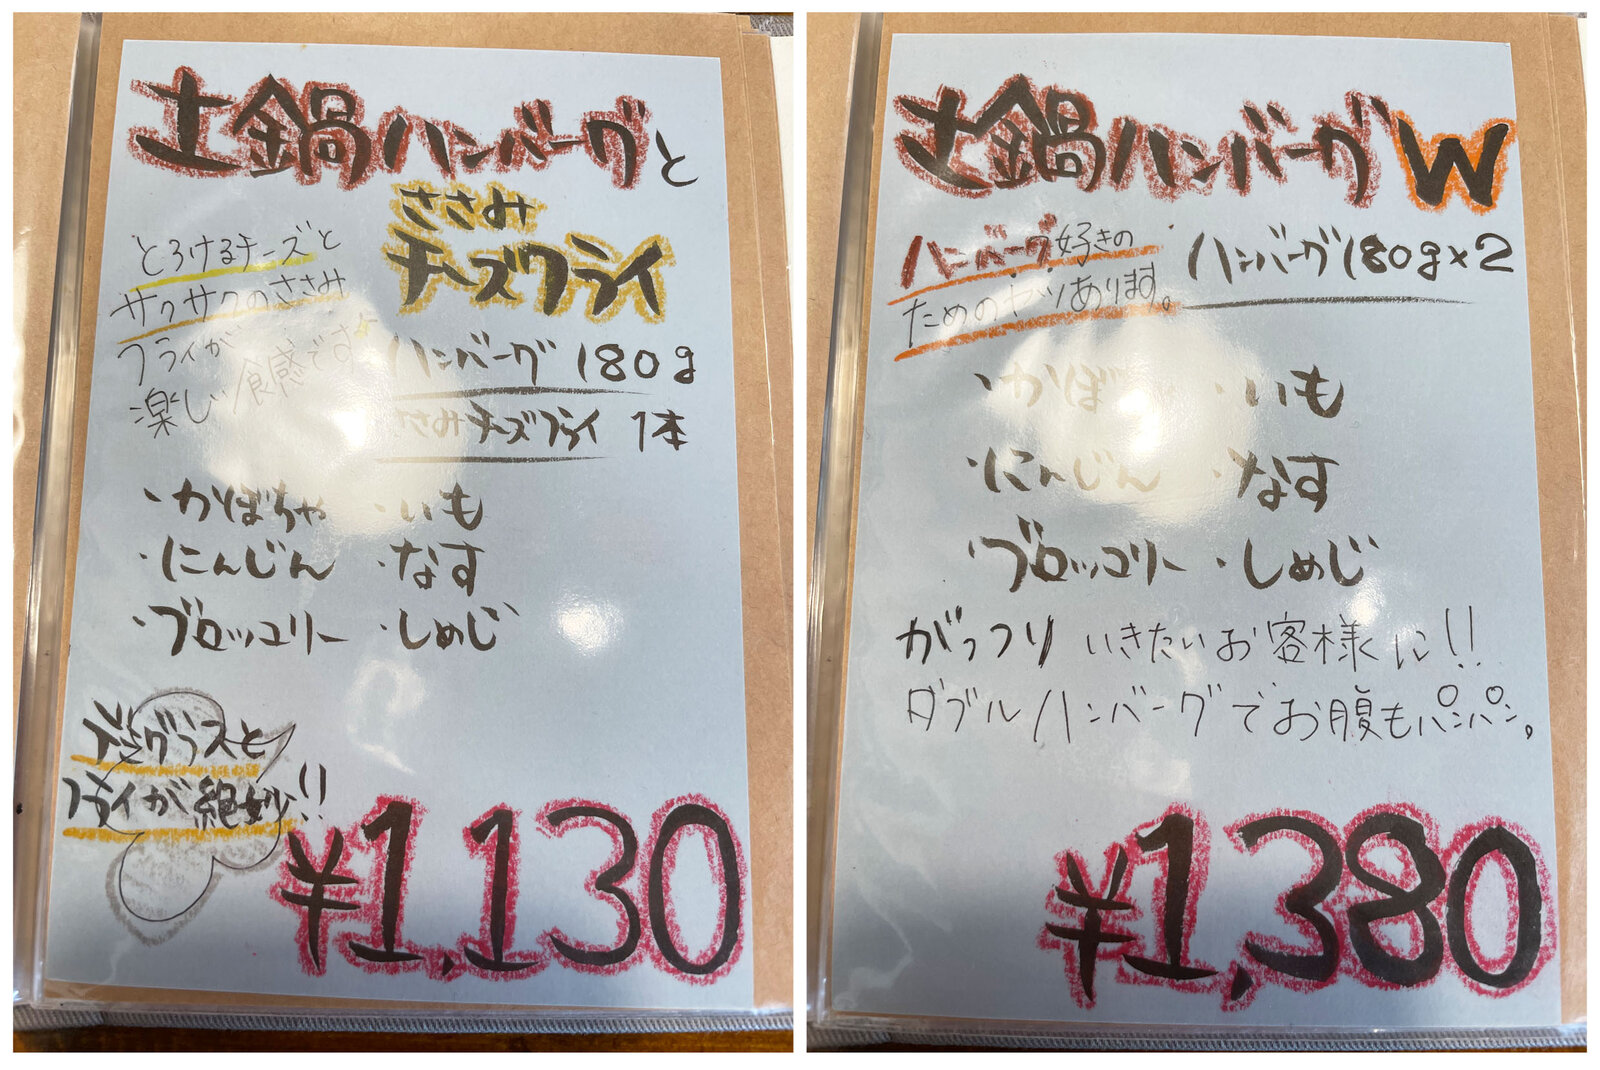 土鍋ハンバーグと
ささみ
チーズフライ
とろけるチーズと
サクサクのささみ
フライが
楽しい食感です
ハンバーグ 180g
ささみチーズフライ 1本
・かぼちゃ ・いも
・にんじん ・なす
・ブロッコリー ・しめじ
デミグラスと
フライが絶妙!!
¥1,130
土鍋ハンバーグW
ハンバーグ好きの
ためのヤツあります。
ハンバーグ180g×2
・かぼ ・いも
・にんじん ・なす
・ブロッコリー ・しめじ
がっつりいきたいお客様に!!
ダブルハンバーグでお腹もパンパン。
¥1,380